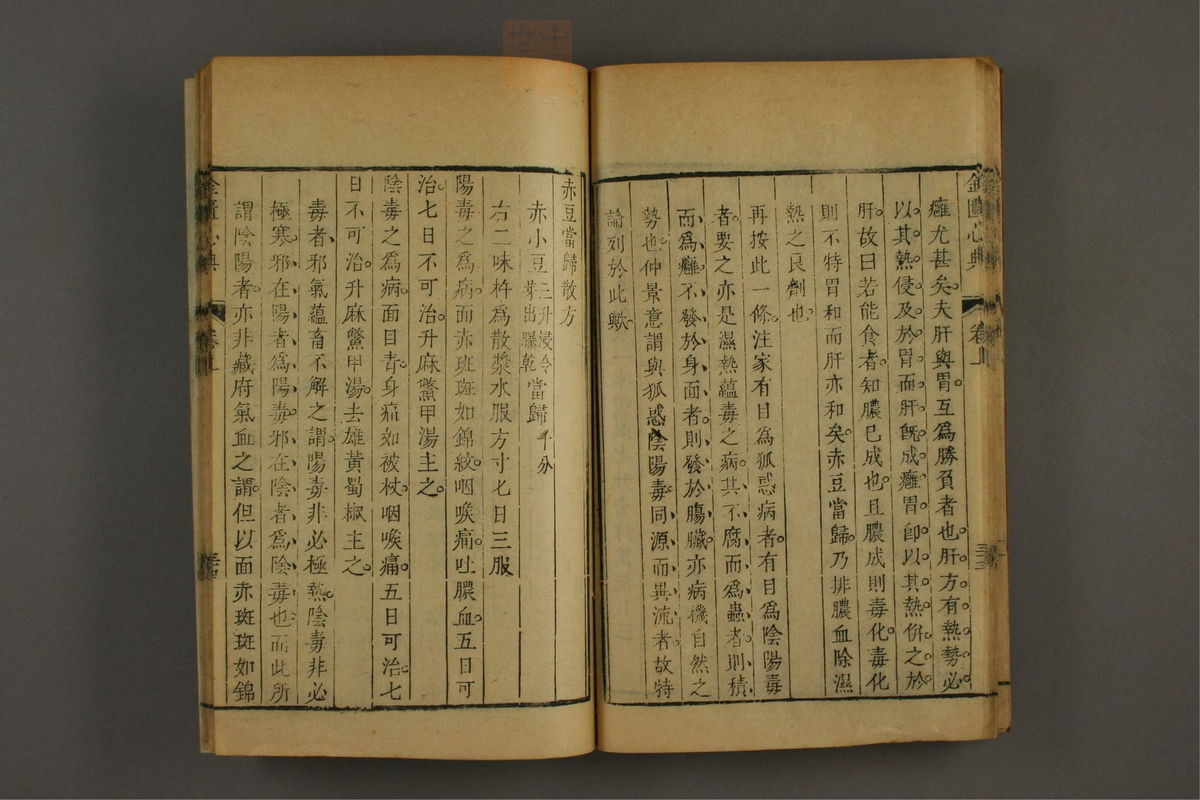 金匱心典
卷上
癰尤甚矣夫肝與胃互爲勝負者也肝方有熱勢必
以其熱侵及於胃而肝旣成癰胃卽以其熱併之於
肝故曰若能食者知膿已成也且膿成則毒化毒化
則不特胃和而肝亦和矣赤豆當歸乃排膿血除濕
熱之良劑也
再按此一條注家有目爲狐惑病者有目爲陰陽毒
者要之亦是濕熱蘊毒之病其不腐而爲蟲者則積
而爲癰不發於身面者則發於腸臟亦病機自然之
勢也仲景意謂與狐惑陰陽毒同源而異流者故特
論列於此歟
赤豆當歸散方
赤小豆三升浸令芽出曝乾 當歸十分
右二味杵爲散漿水服方寸匕日三服
陽毒之爲病面赤斑斑如錦紋咽喉痛吐膿血五日可
治七日不可治升麻鱉甲湯主之
陰毒之爲病面目青身痛如被杖咽喉痛五日可治七
日不可治升麻鱉甲湯去雄黃蜀椒主之
毒者邪氣蘊畜不解之謂陽毒非必極熱陰毒非必
極寒邪在陽者爲陽毒邪在陰者爲陰毒也而此所
謂陰陽者亦非藏府氣血之謂但以面赤斑斑如錦
金匱心典
卷上